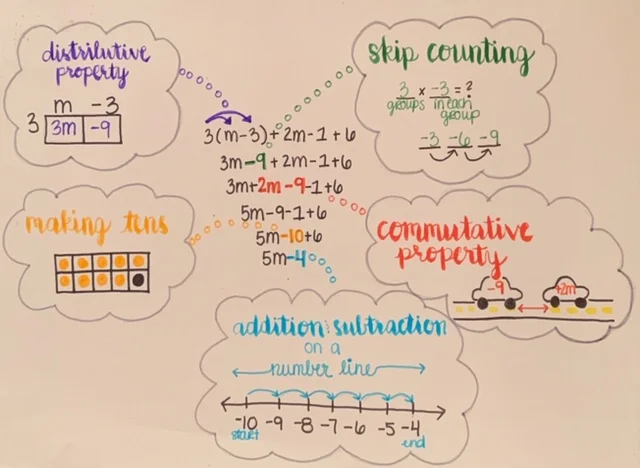 distributive
property
m -3
3 3m -9
skip counting
3 x -3 = ?
groups in each
group
-3 -6 -9
3(m-3)+2m-1+6
3m-9+2m-1+6
3m+2m-9-1+6
5m-9-1+6
5m-10+6
5m-4
making tens
commutative
property
-9 +2m
addition:subtraction
on a
number line
-10 -9 -8 -7 -6 -5 -4
start end